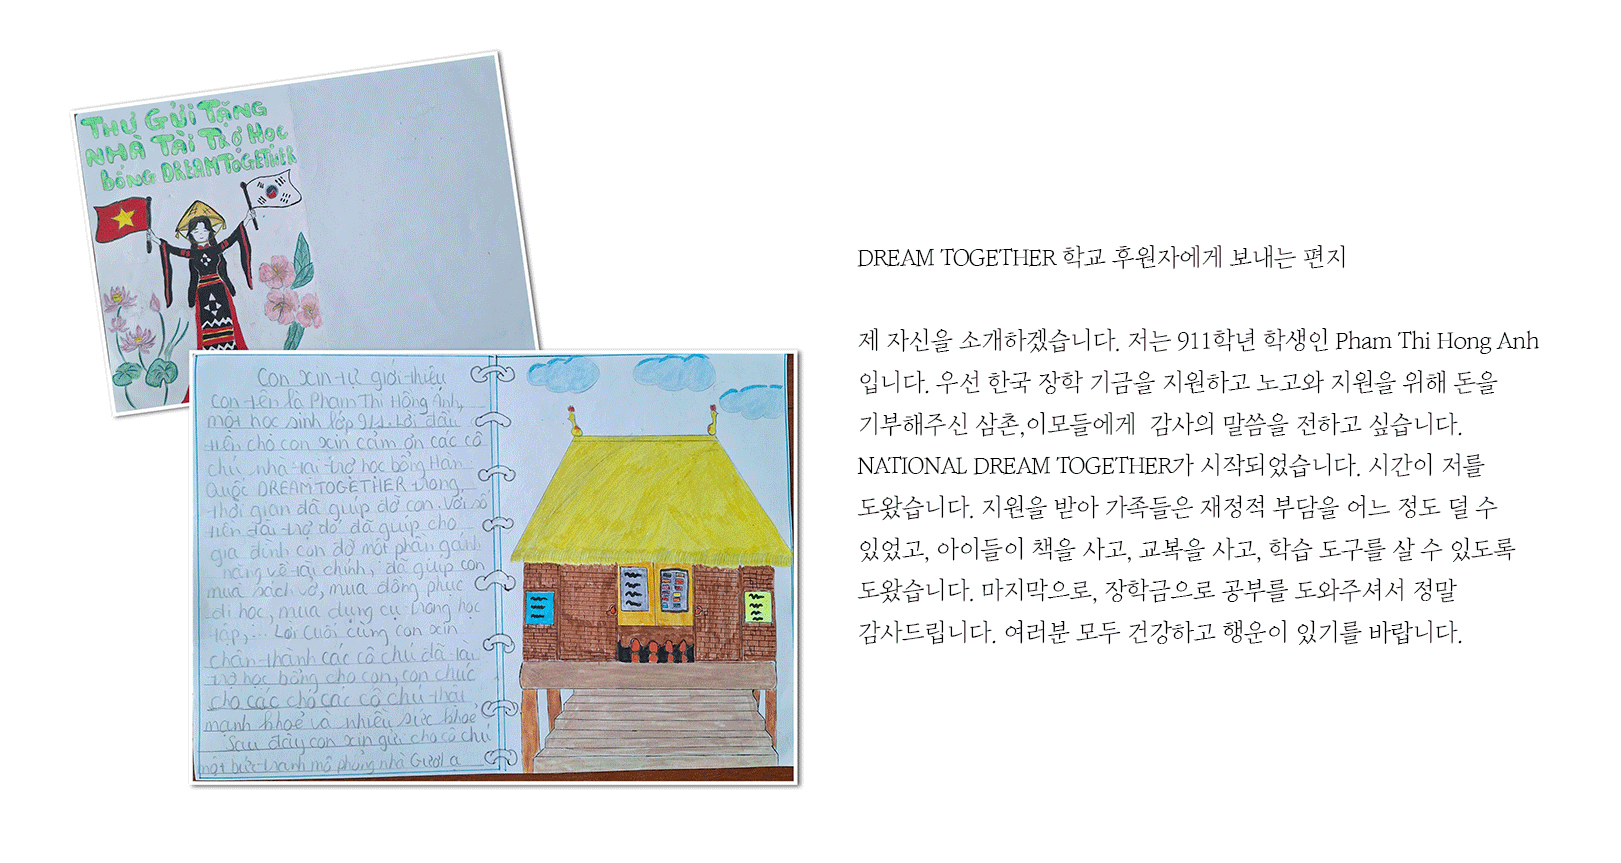 THƯ GỬI TẶNG
NHÀ TÀI TRỢ HỌC
BỔNG DREAM TOGETHER
Con xin tự giới thiệu
con tên là Phạm Thị Hồng Ánh,
một học sinh lớp 9/1. Lời đầu
tiên cho con xin cảm ơn các cô
chú nhà tài trợ học bổng Hàn
Quốc DREAM TOGETHER trong
thời gian đã giúp đỡ con. Với số
tiền tài trợ đó, đã giúp cho
gia đình con đỡ một phần gánh
nặng về tài chính, đã giúp con
mua sách vở, mua đồng phục
đi học, mua dụng cụ trong học
tập,... Lời cuối cùng con xin
chân thành các cô chú đã tài
trợ học bổng cho con, con chúc
cho các cho các cô chú thật
mạnh khoẻ và nhiều sức khoẻ
Sau đây con xin gửi cho cô chú
một bức tranh mô phỏng nhà Gươl ạ
DREAM TOGETHER 학교 후원자에게 보내는 편지
제 자신을 소개하겠습니다. 저는 911학년 학생인 Pham Thi Hong Anh
입니다. 우선 한국 장학 기금을 지원하고 노고와 지원을 위해 돈을
기부해주신 삼촌,이모들에게 감사의 말씀을 전하고 싶습니다.
NATIONAL DREAM TOGETHER가 시작되었습니다. 시간이 저를
도왔습니다. 지원을 받아 가족들은 재정적 부담을 어느 정도 덜 수
있었고, 아이들이 책을 사고, 교복을 사고, 학습 도구를 살 수 있도록
도왔습니다. 마지막으로, 장학금으로 공부를 도와주셔서 정말
감사드립니다. 여러분 모두 건강하고 행운이 있기를 바랍니다.